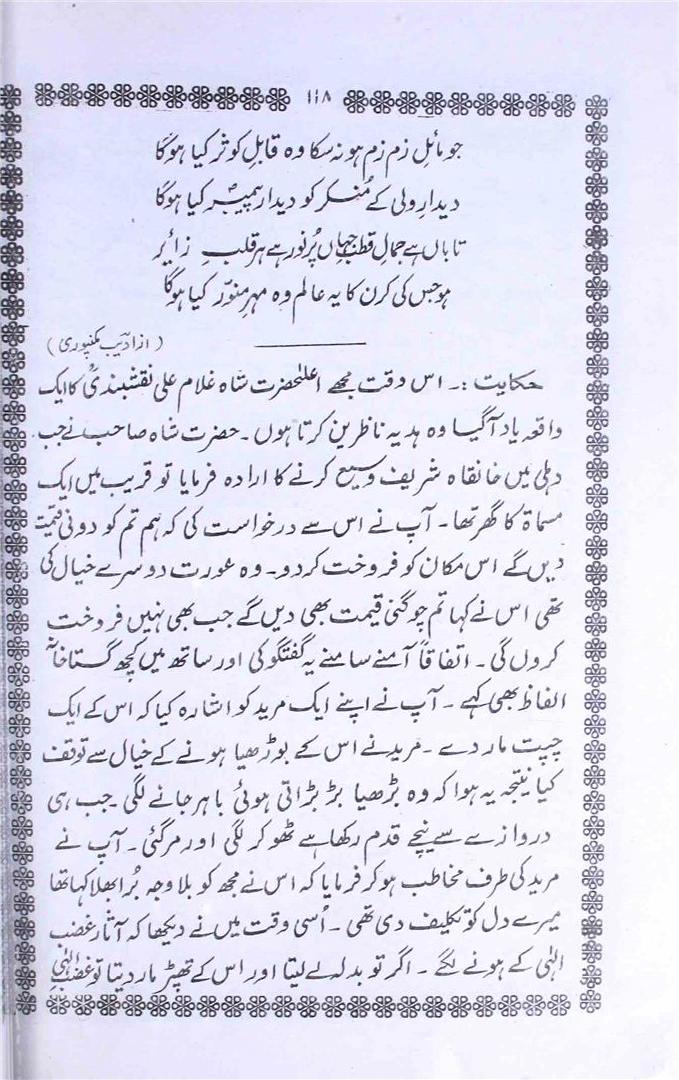 ۱۱۸
جو مائلِ زم زم ہو نہ سکا وہ قابلِ کوثر کیا ہوگا
دیدارِ ولی کے مُنکر کو دیدارِ پیمبرؐ کیا ہوگا
تاباں ہے جمالِ قطبِ جہاں پُر نور ہے ہر قلبِ زائر
ہو جس کی کرن کا یہ عالم وہ مہرِ منوّر کیا ہوگا
(از ادیب مکنپوری)
حکایت :۔ اس وقت مجھے اعلیٰحضرت شاہ غلام علی نقشبندیؒ کا ایک
واقعہ یاد آگیا وہ ہدیہ ناظرین کرتا ہوں ۔ حضرت شاہ صاحب نے جب
دہلی میں خانقاہ شریف وسیع کرنے کا ارادہ فرمایا تو قریب میں ایک
مسماۃ کا گھر تھا ۔ آپ نے اس سے درخواست کی کہ ہم تم کو دونی قیمت
دیں گے اس مکان کو فروخت کر دو ۔ وہ عورت دوسرے خیال کی
تھی اس نے کہا تم چوگنی قیمت بھی دیں گے جب بھی نہیں فروخت
کروں گی ۔ اتفاقاً آمنے سامنے یہ گفتگو کی اور ساتھ میں کچھ گستاخانہ
الفاظ بھی کہے ۔ آپ نے اپنے ایک مرید کو اشارہ کیا کہ اس کے ایک
چپت مار دے ۔ مرید نے اس کے بوڑھیا ہونے کے خیال سے توقف
کیا نتیجہ یہ ہوا کہ وہ بڑھیا بڑبڑاتی ہوئی باہر جانے لگی جب ہی
دروازے سے نیچے قدم رکھا ہے ٹھوکر لگی اور مر گئی ۔ آپ نے
مرید کی طرف مخاطب ہو کر فرمایا کہ اس نے مجھ کو بلا وجہ بُرا بھلا کہا تھا
میرے دل کو تکلیف دی تھی ۔ اُسی وقت میں نے دیکھا کہ آثار غضب
الہٰی کے ہونے لگے ۔ اگر تو بدلہ لے لیتا اور اس کے تھپڑ مار دیتا تو غضبِ الہٰی